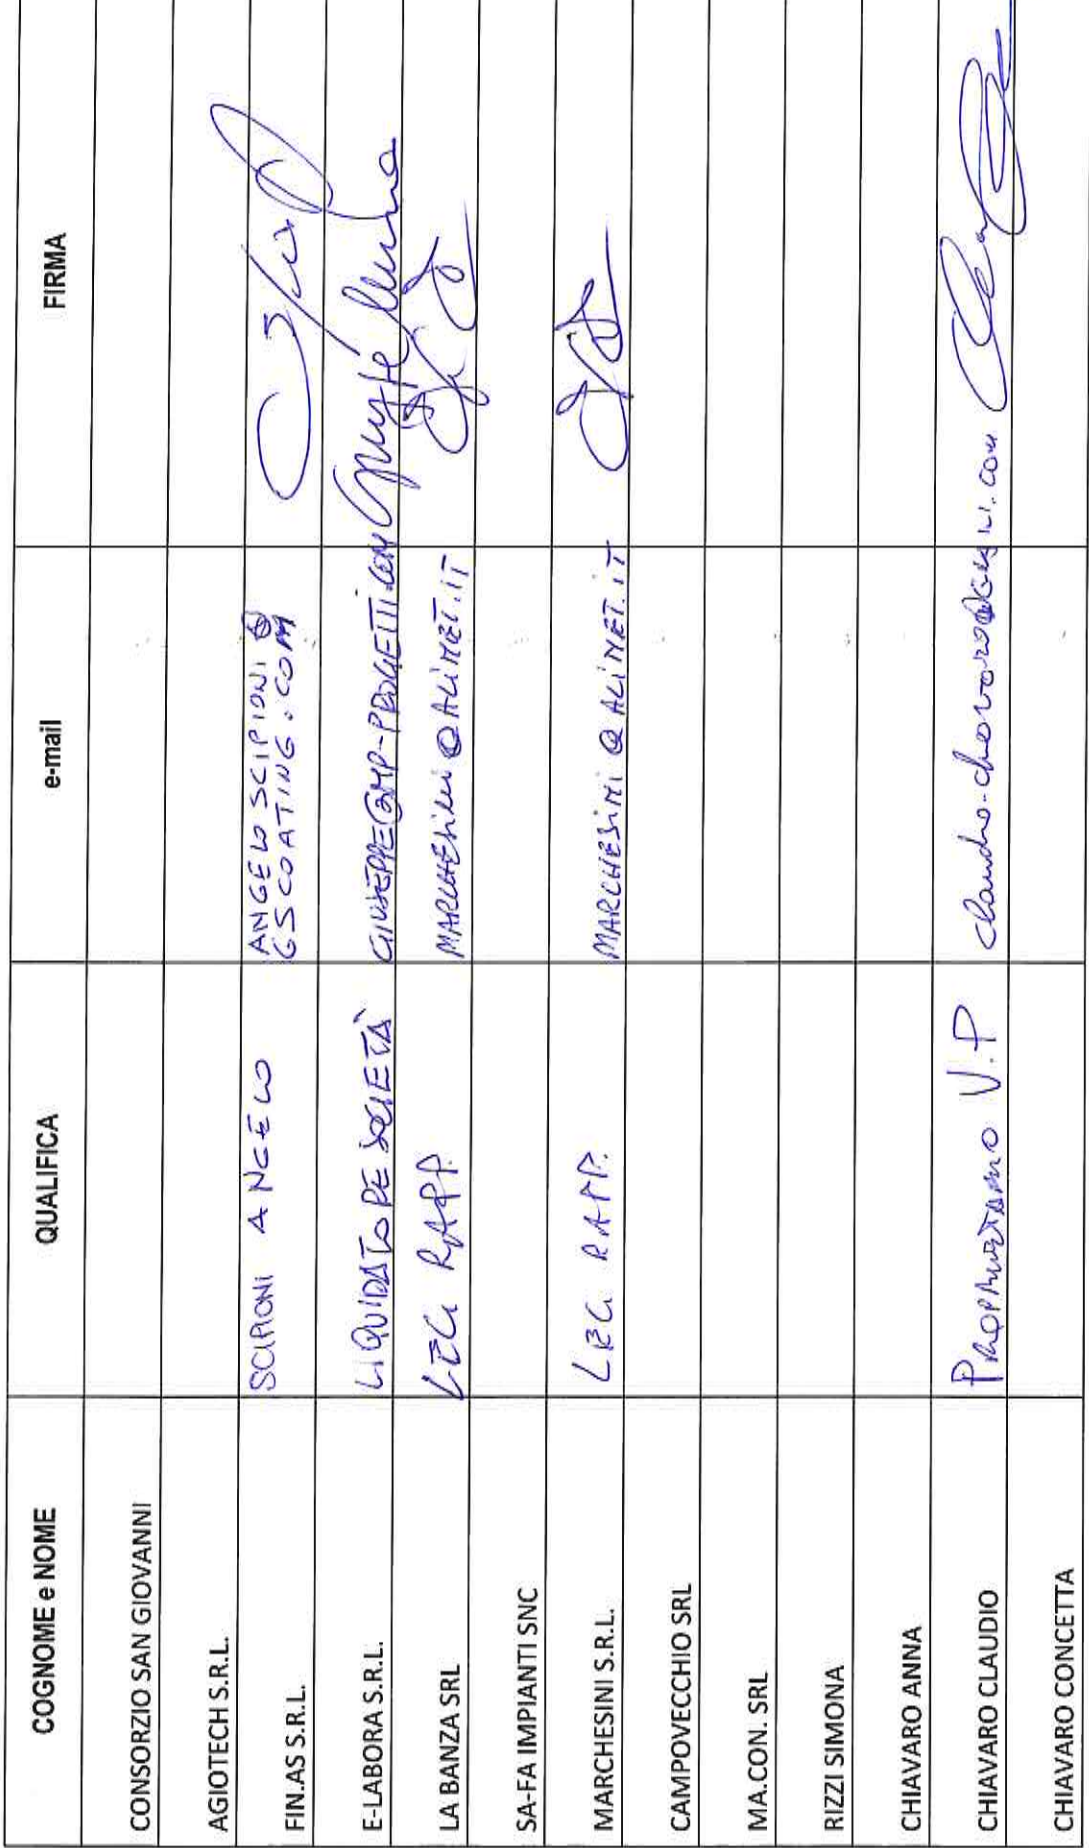 COGNOME e NOME QUALIFICA e-mail FIRMA
CONSORZIO SAN GIOVANNI
AGIOTECH S.R.L.
FIN.AS S.R.L. SCIPIONI ANGELO ANGELO SCIPIONI @
GSCOATING.COM
E-LABORA S.R.L. LIQUIDATORE SOCIETÀ GIUSEPPE@MP-PROGETTI.COM
LA BANZA SRL LEG RAPP. MARCHESINI@ALIMET.IT
SA-FA IMPIANTI SNC
MARCHESINI S.R.L. LEG. RAPP. MARCHESINI@ALIMET.IT
CAMPOVECCHIO SRL
MA.CON. SRL
RIZZI SIMONA
CHIAVARO ANNA
CHIAVARO CLAUDIO PROPRIETARIO V.P
CHIAVARO CONCETTA